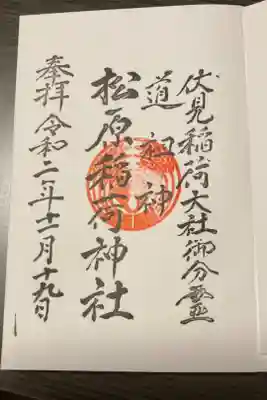 伏見稲荷大社御分霊
道祖神
松原稲荷神社
奉拝令和二年十一月十九日